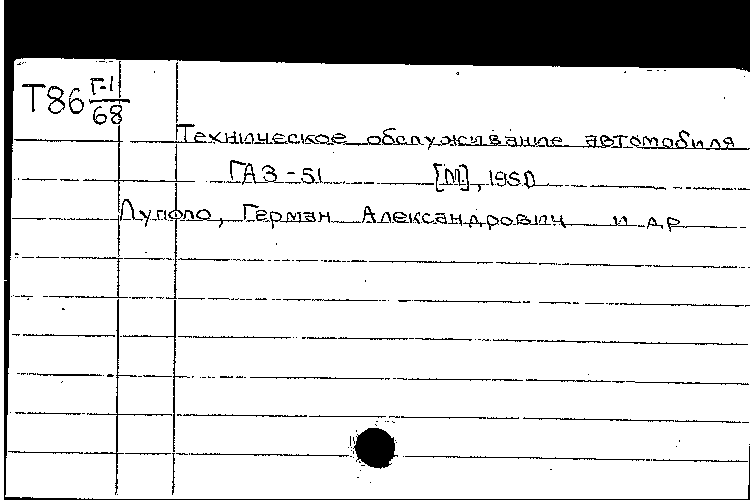 Т86 Г-1/68
Техническое обслуживание автомобиля
ГАЗ-51 [М], 1950
Луполо, Герман Александрович и др